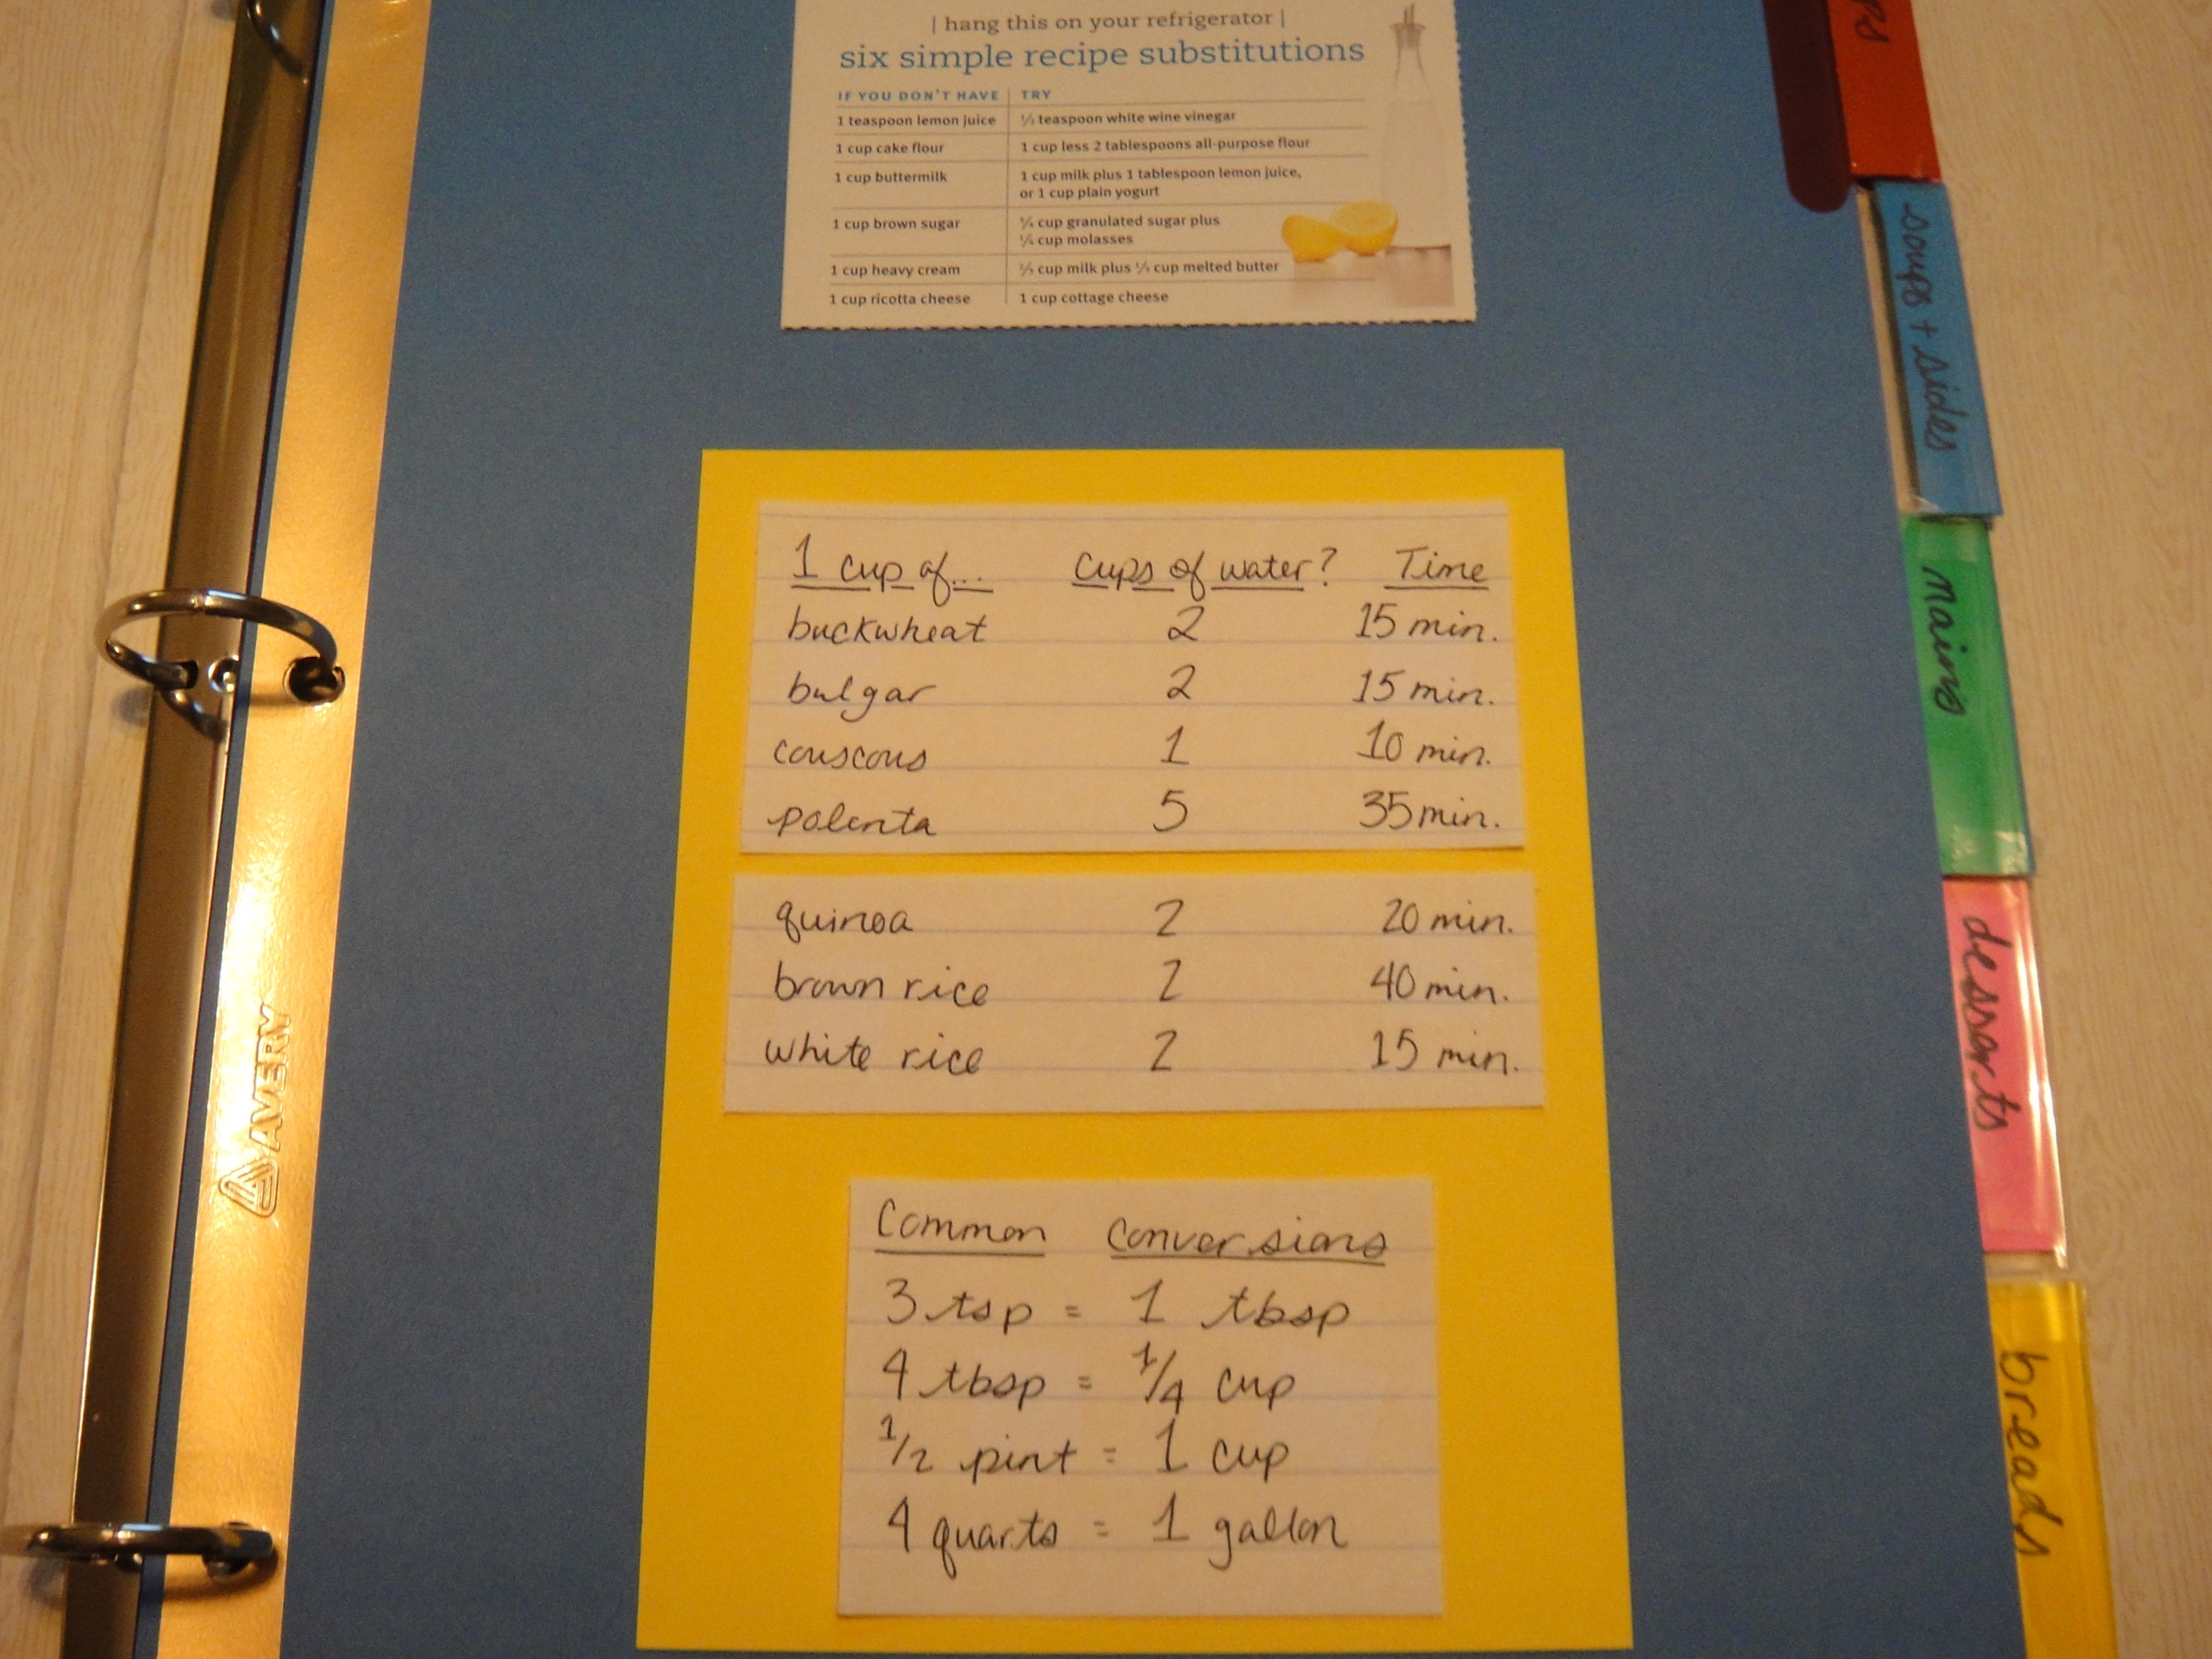 | hang this on your refrigerator |
six simple recipe substitutions
IF YOU DON'T HAVE | TRY
1 teaspoon lemon juice ½ teaspoon white wine vinegar
1 cup cake flour 1 cup less 2 tablespoons all-purpose flour
1 cup buttermilk 1 cup milk plus 1 tablespoon lemon juice,
or 1 cup plain yogurt
1 cup brown sugar ¾ cup granulated sugar plus
¼ cup molasses
1 cup heavy cream ⅔ cup milk plus ⅓ cup melted butter
1 cup ricotta cheese 1 cup cottage cheese
1 cup of... cups of water? Time
buckwheat 2 15 min.
bulgar 2 15 min.
couscous 1 10 min.
polenta 5 35 min.
quinoa 2 20 min.
brown rice 2 40 min.
white rice 2 15 min.
Common Conversions
3 tsp = 1 tbsp
4 tbsp = 1/4 cup
1/2 pint = 1 cup
4 quarts = 1 gallon
AVERY
soups + sides
mains
desserts
breads